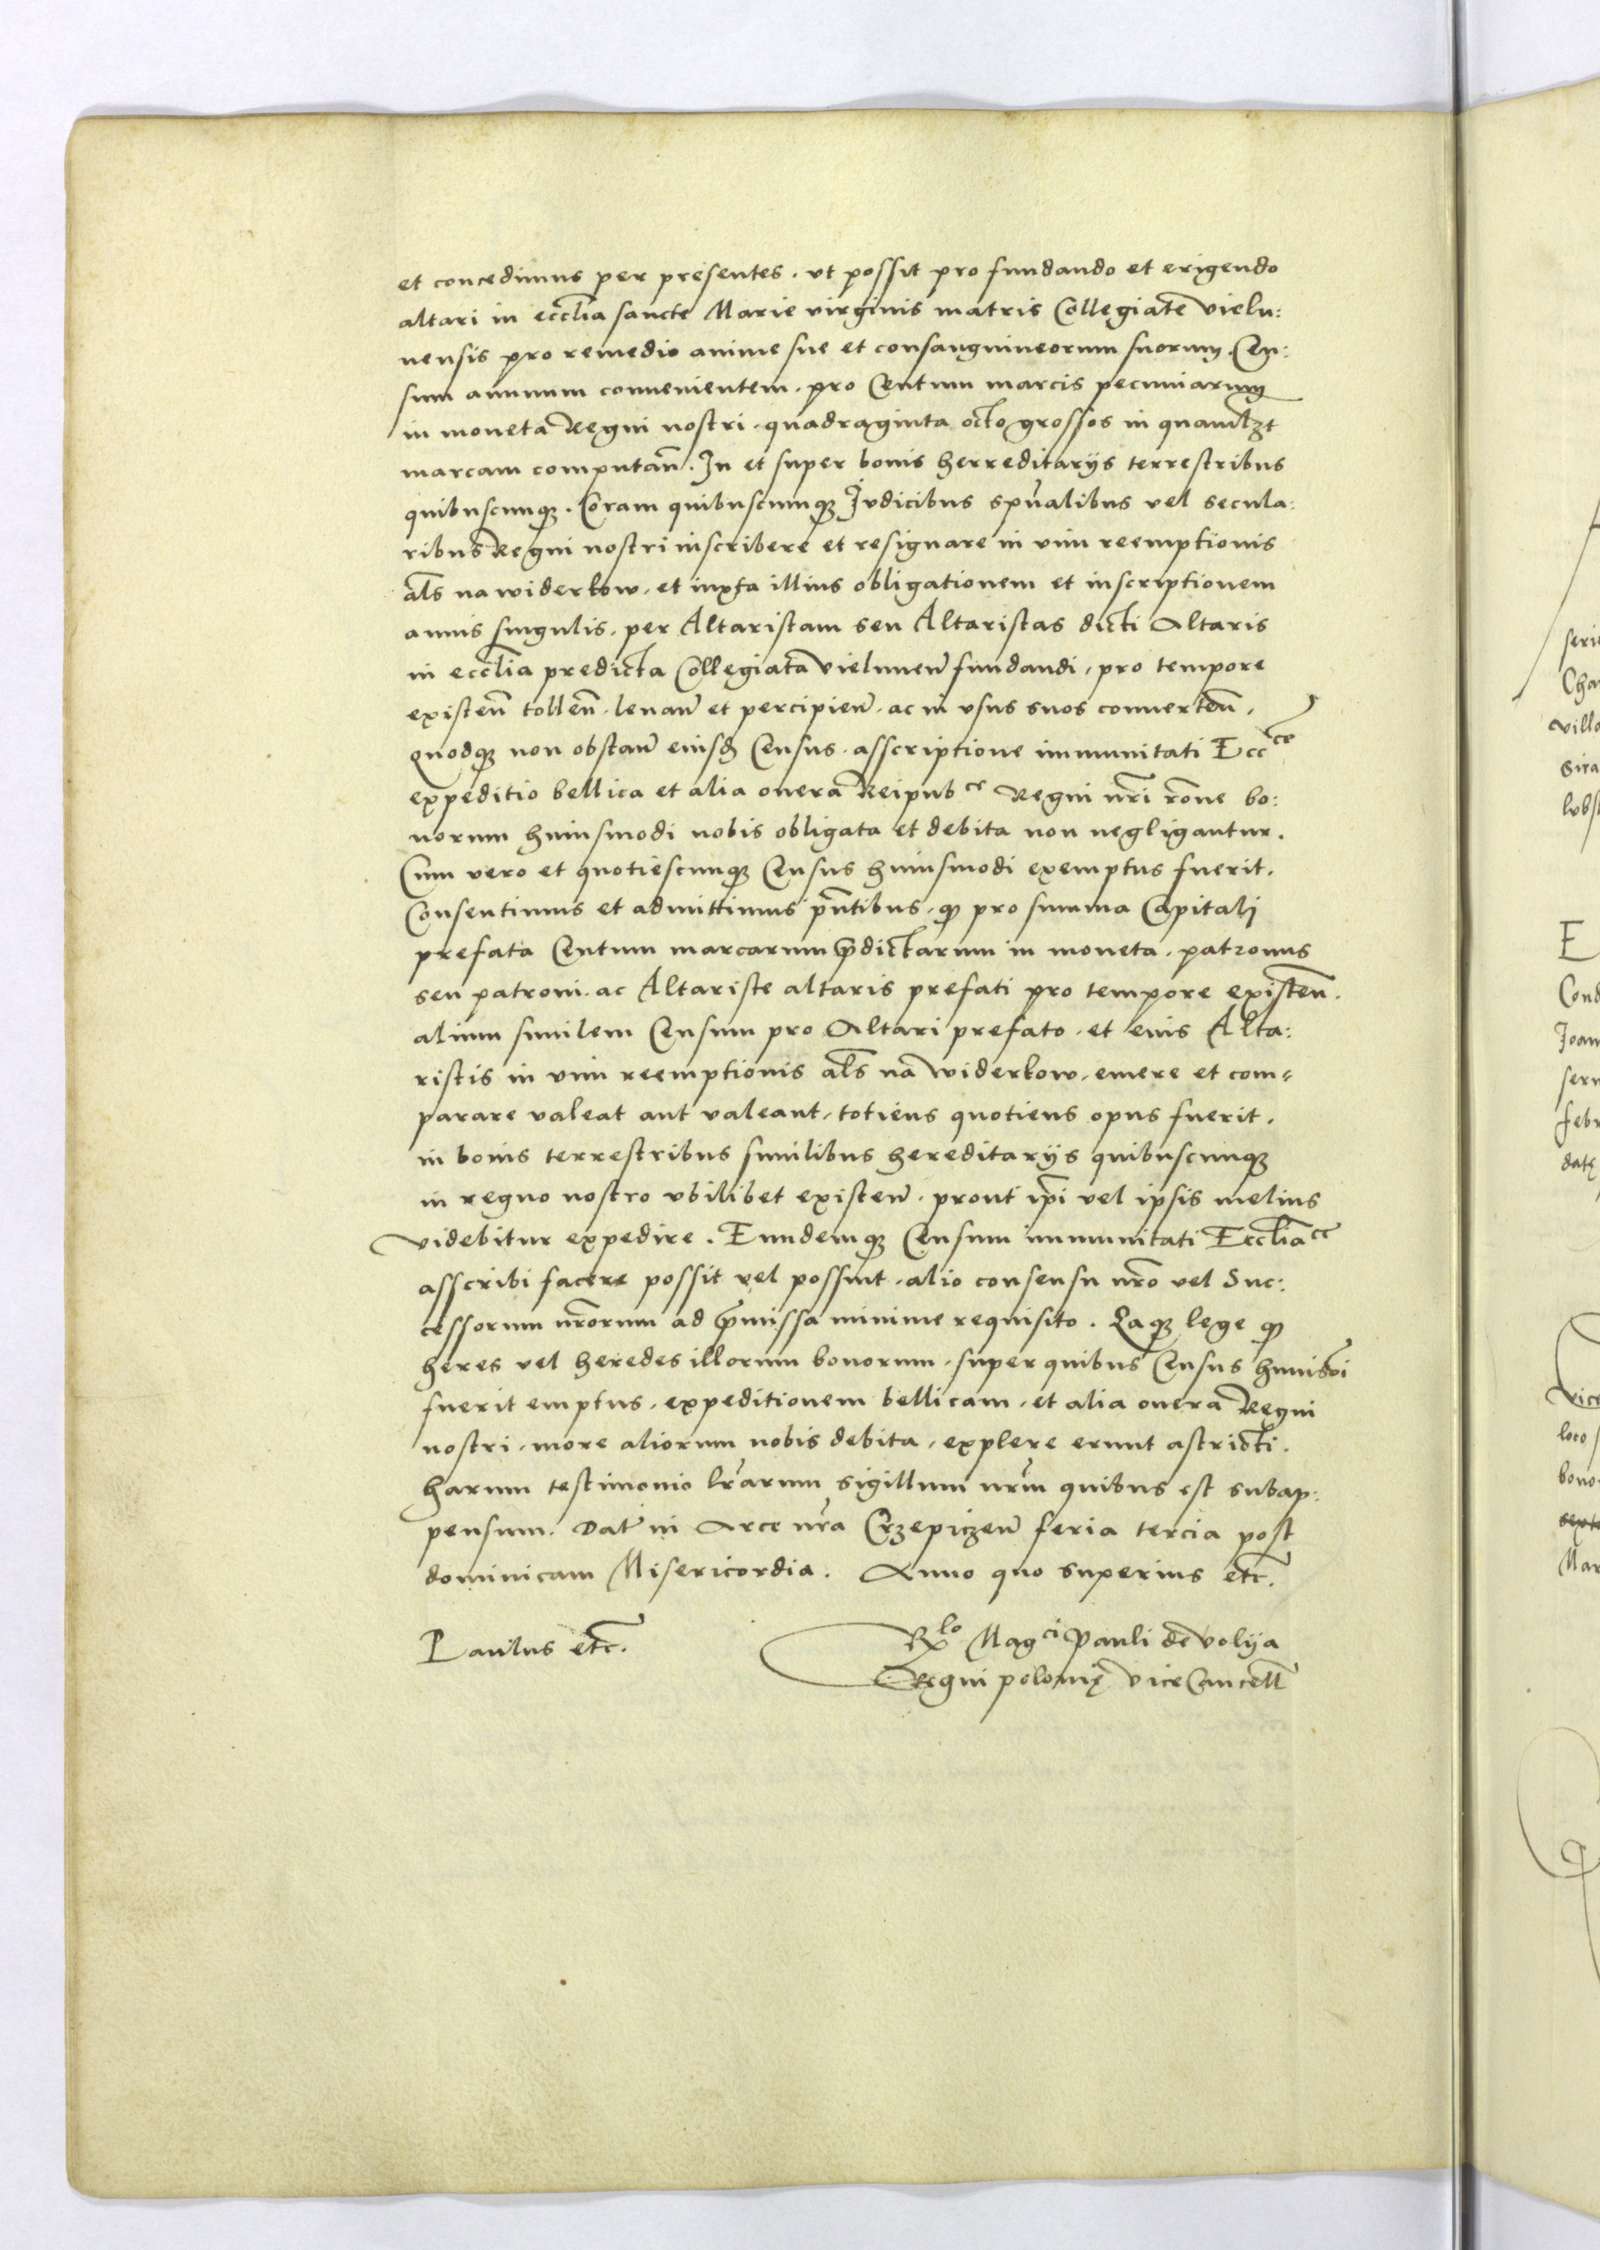 et concedimus per presentes. vt possit pro fundando et erigendo
altari in ecclia sancte Marie virginis matris Collegiate vielu:
nensis pro remedio anime sue et consanguineorum suorum. Cen:
sum annuum conuenientem. pro Centum marcis pecuniarum
in moneta Regni nostri. quadraginta octo grossos in quamlzt
marcam computañ. In et super bonis herreditarijs terrestribus
quibuscunqꝫ. Coram quibuscumqꝫ Judicibus spūalibus vel secula:
ribus Regni nostri inscribere et resignare in vim reemptionis
als na widerkow. et iuxta illius obligationem et inscriptionem
annis singulis. per Altaristam seu Altaristas dicti Altaris
in ecclia predicta Collegiata vielunen̄ fundandi, pro tempore
existen̄ tollen̄. leuan̄ et percipien̄. ac in vsus suos conuerten̄.
quodqꝫ non obstan̄ eiusd̄ Census. asscriptione immunitati Ecc^ce
expeditio bellica et alia onera Reipub^ce Regni nr̄i rōne bo:
norum huiusmodi nobis obligata et debita non negligantur.
Cum vero et quotiescunqꝫ Census huiusmodi exemptus fuerit.
Consentimus et admittimus pn̄tibus. qꝫ pro summa Capitali
prefata Centum marcarum p̄dictarum in moneta. patronus
seu patroni. ac Altariste altaris prefati pro tempore existen̄.
alium similem Censum pro Altari prefato. et eius Alta:
ristis in vim reemptionis als na widerkow. emere et com-
parare valeat aut valeant, totiens quotiens opus fuerit.
in bonis terrestribus similibus hereditarijs quibuscunqꝫ
in regno nostro vbilibet existen̄. prout ip̄i vel ipsis melius
videbitur expedire. Eundemqꝫ Censum immunitati Ecclia^ce
asscribi facere possit vel possint. alio consensu nr̄o vel Suc:
cessorum nr̄orum ad p̄missa minime requisito. Eaqꝫ lege qꝫ
heres vel heredes illorum bonorum. super quibus Census huiusm̄oi
fuerit emptus. expeditionem bellicam. et alia onera Regni
nostri. more aliorum nobis debita, explere erunt astricti.
harum testimonio lr̄arum sigillum nr̄m quibus est subap:
pensum. Dat̄ in Arce nr̄a Crzepiczen̄ feria tercia post
dominicam Misericordia. Anno quo superius etc.
Paulus etc.
Rlo Mag^ci Pauli de volija
Regni polonię vice Cancell̄